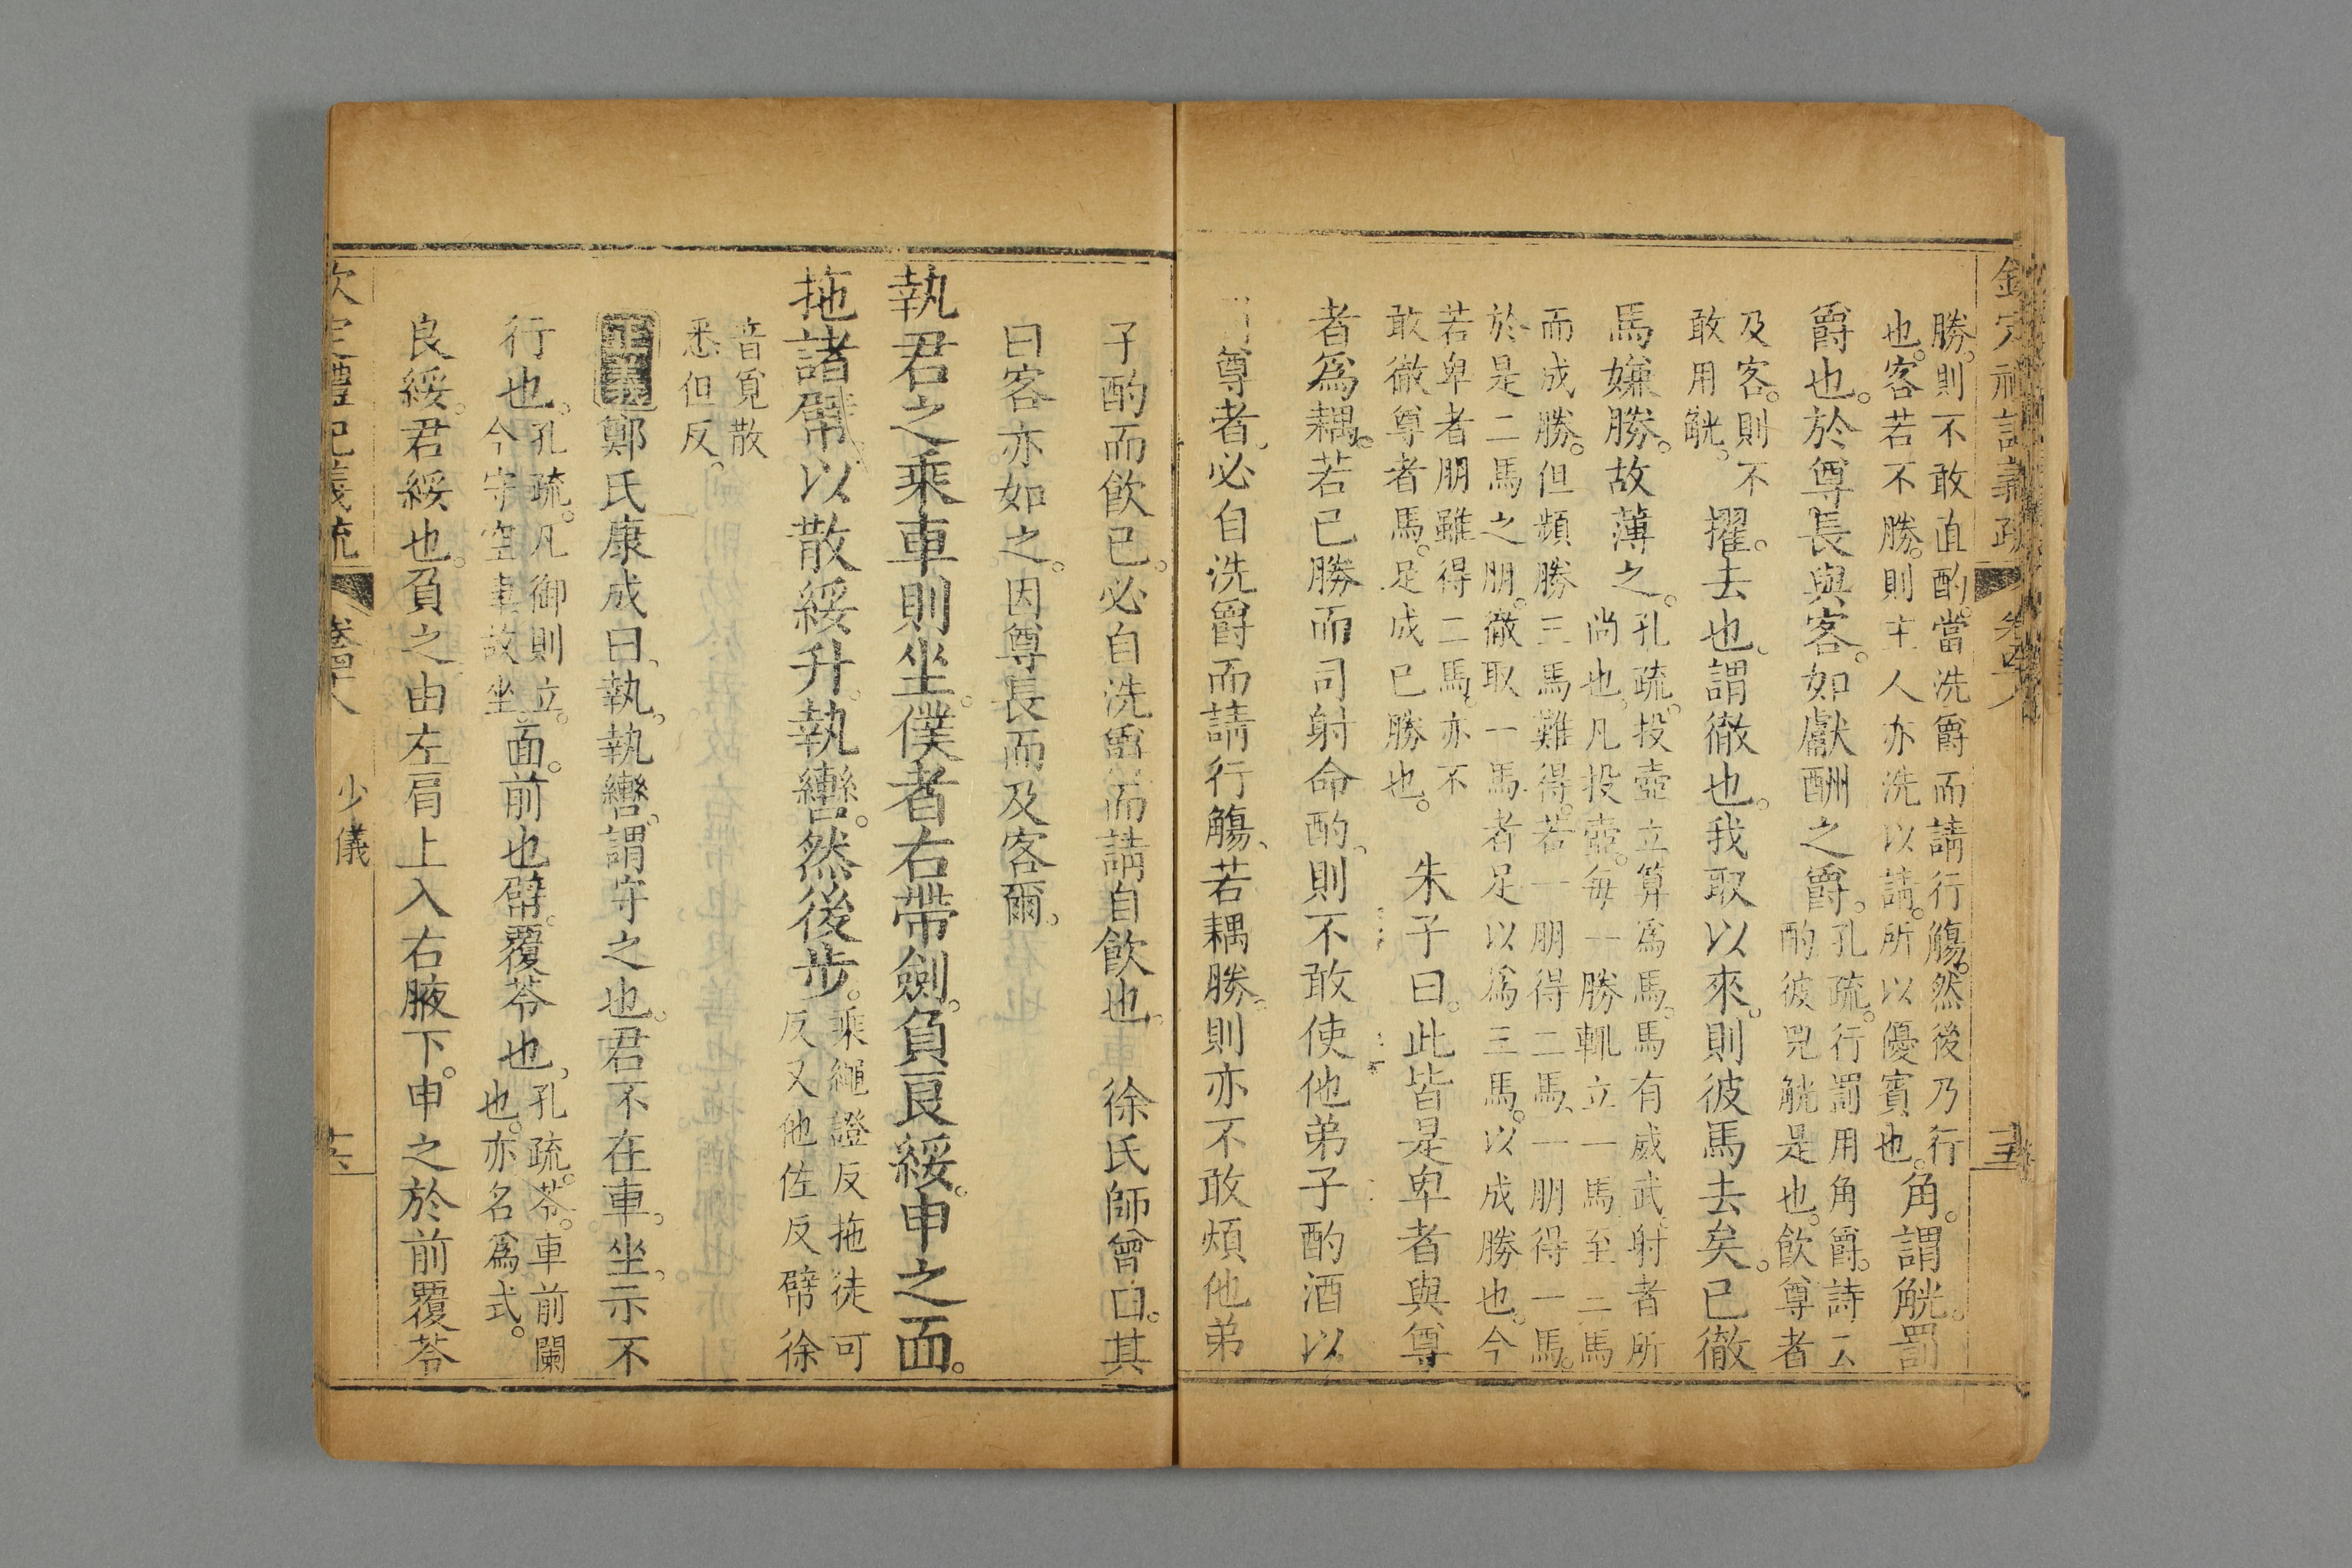 欽定禮記義疏 卷四十八 十五
勝。則不敢直酌。當洗爵而請行觴。然後乃行
也。客若不勝。則主人亦洗以請。所以優賓也。
角。謂觥。罰
爵也。於尊長與客。如獻酬之爵。
孔疏。行罰用角爵。詩云
酌彼兕觥是也。飲尊者
及客。則不
敢用觥。
擢。去也。謂徹也。我取以來。則彼馬去矣。已徹
馬嫌勝。故薄之。
孔疏。投壺立算爲馬。馬有威武。射者所
尚也。凡投壺。每一勝輒立一馬。至三馬
而成勝。但頻勝三馬難得。若一朋得二馬、一朋得一馬。
於是二馬之朋。徹取一馬者足以爲三馬。以成勝也。今
若卑者朋雖得二馬。亦不
敢徹尊者馬。足成已勝也。
朱子曰。此皆是卑者與尊
者爲耦。若已勝而司射命酌、則不敢使他弟子酌酒以
尊者、必自洗爵而請行觴、若耦勝、則亦不敢煩他弟
子酌而飲已。必自洗爵而請自飲也。 徐氏師曾曰。其
曰客亦如之。因尊長而及客爾。
執君之乘車則坐。僕者右帶劍。負良綏。申之面。
拖諸幦、以散綏升。執轡。然後步。
乘繩證反拖徒可
反又他佐反幦徐
音覓散
悉但反。
正義 鄭氏康成曰、執、執轡。謂守之也。君不在車。坐。示不
行也。
孔疏。凡御則立。
今守空車故坐。
面。前也幦。覆苓也、
孔疏。苓。車前闌
也。亦名爲式。
良綏。君綏也。負之由左肩上入右腋下。申之於前覆苓
欽定禮記義疏 卷四十八 少儀 十六